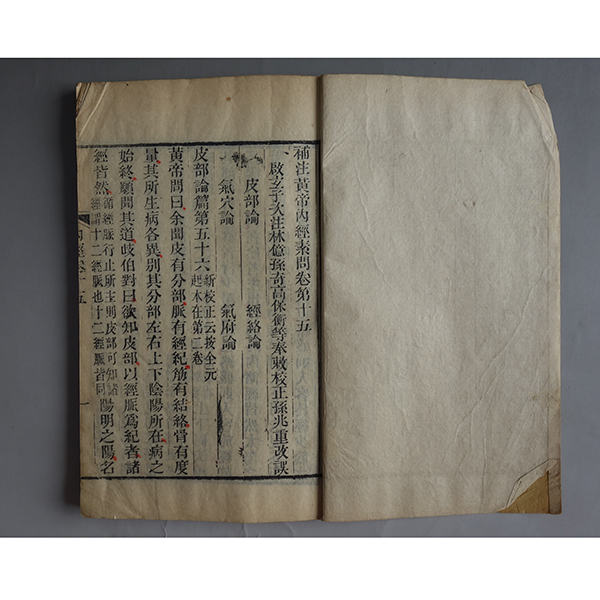 補注黃帝內經素問卷第十五
啟玄子次注林億孫奇高保衡等奉敕校正孫兆重改誤
皮部論 經絡論
氣穴論 氣府論
皮部論篇第五十六新校正云按全元起本在第二卷
黃帝問曰余聞皮有分部脈有經紀筋有結絡骨有度
量其所生病各異別其分部左右上下陰陽所在病之
始終願聞其道岐伯對曰欲知皮部以經脈為紀者諸
經皆然循經脈行止所主則皮部可知諸經謂十二經脈也十二經脈皆同陽明之陽名
內經卷十五 一